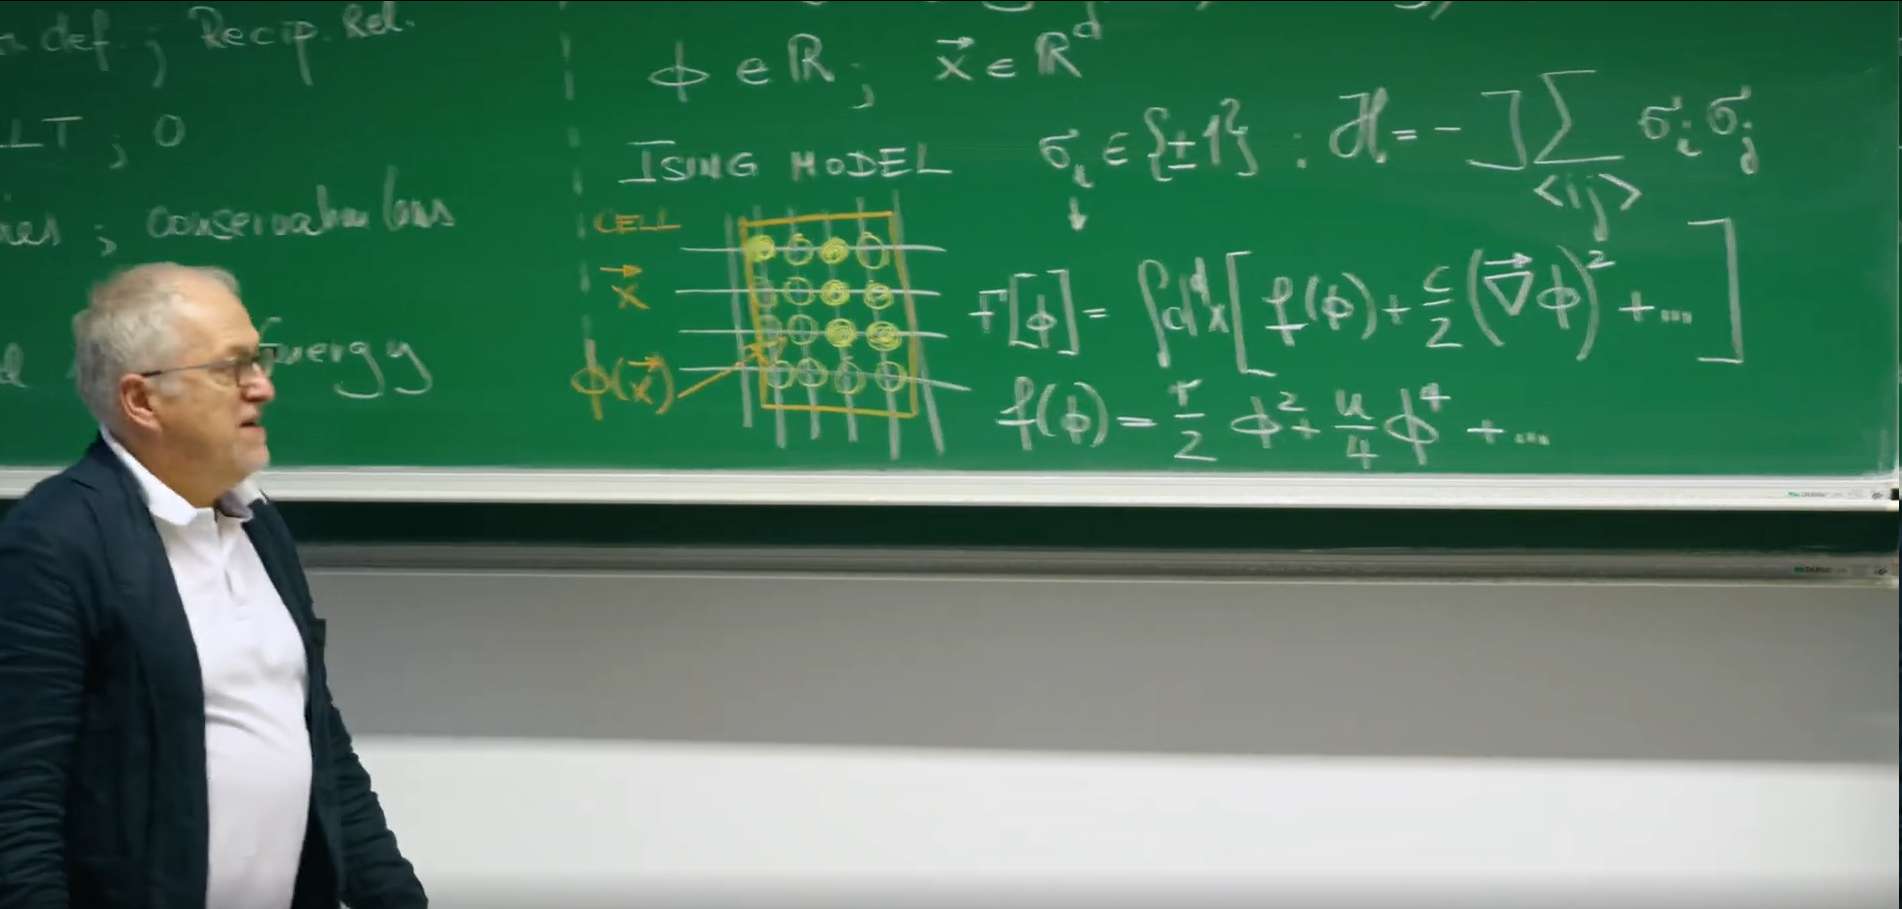 def. ; Recip. Rel.
LT ; 0
; conservation laws
Energy
ϕ ∈ ℝ ; x⃗ ∈ ℝ^d
ISING MODEL σ_i ∈ {±1} : ℋ = - J Σ_<ij> σ_i σ_j
CELL
x⃗
ϕ(x⃗)
F[ϕ] = ∫d^dx [ f(ϕ) + c/2 (∇⃗ϕ)² + ... ]
f(ϕ) = r/2 ϕ² + u/4 ϕ⁴ + ...